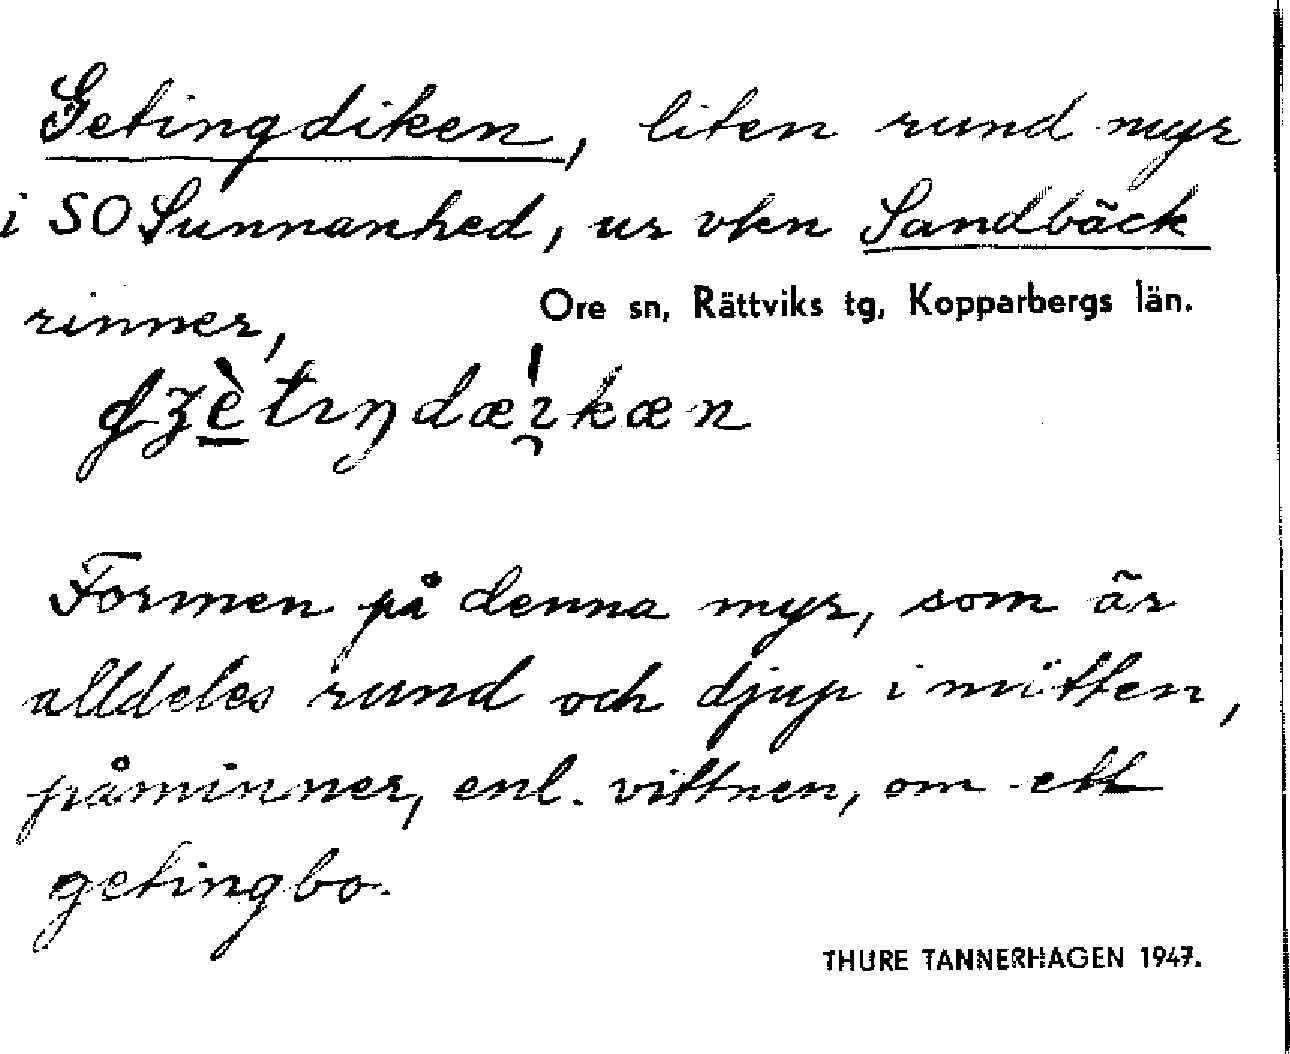 Getingdiken, liten rund myr
i SO Sunnanhed, ur vlken Sandbäck
rinner,
Ore sn, Rättviks tg, Kopparbergs län.
Formen på denna myr, som är
alldeles rund och djup i mitten,
påminner, enl. vittnen, om ett
getingbo.
THURE TANNERHAGEN 1947.